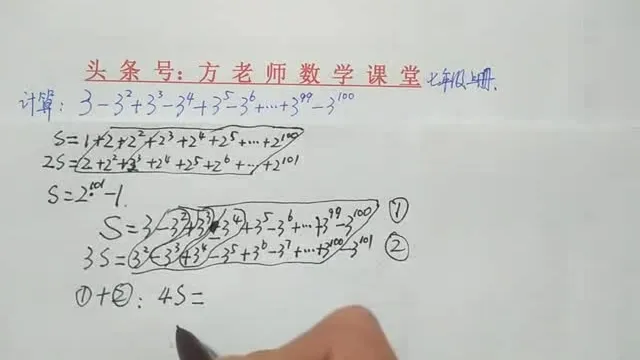 头条号：方老师数学课堂 七年级上册.
计算：3-3²+3³-3⁴+3⁵-3⁶+…+3⁹⁹-3¹⁰⁰
S=1+2+2²+2³+2⁴+2⁵+…+2¹⁰⁰
2S=2+2²+2³+2⁴+2⁵+2⁶+…+2¹⁰¹
S=2¹⁰¹-1.
S=3-3²+3³-3⁴+3⁵-3⁶+…+3⁹⁹-3¹⁰⁰ ①
3S=3²-3³+3⁴-3⁵+3⁶-3⁷+…+3¹⁰⁰-3¹⁰¹ ②
①+②：4S=